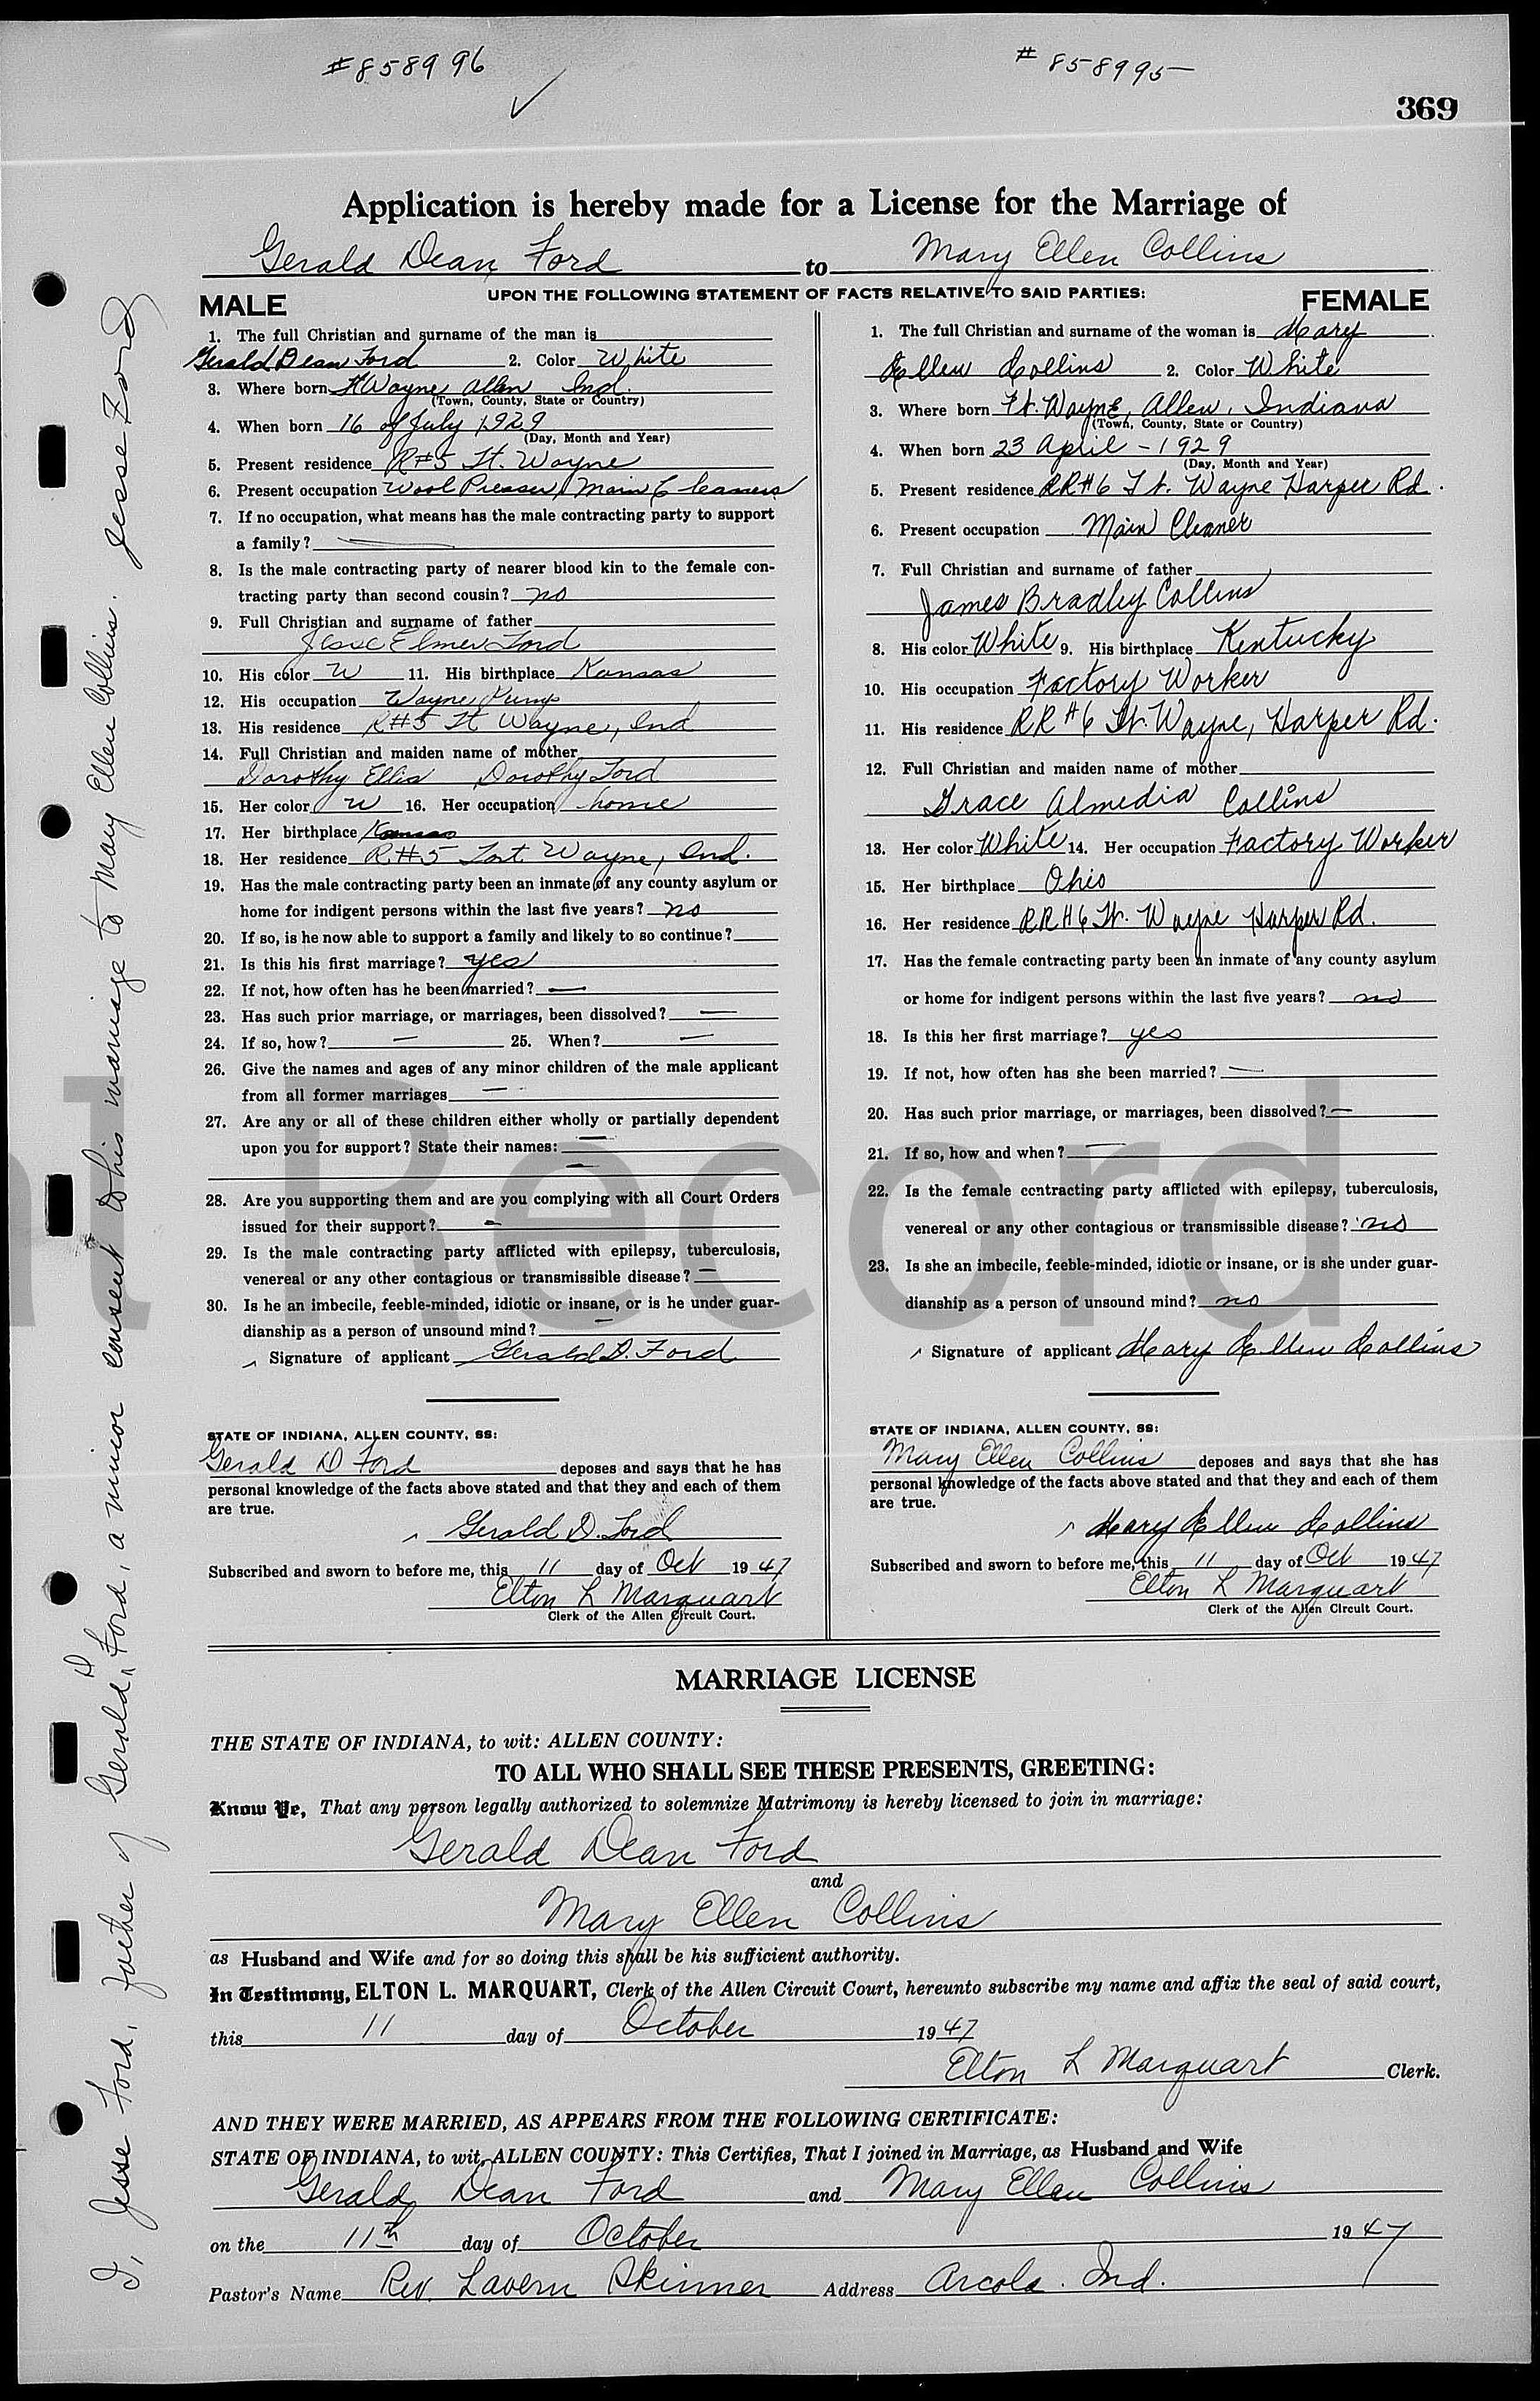 #858996
#858995
369
Application is hereby made for a License for the Marriage of
Gerald Dean Ford to Mary Ellen Collins
UPON THE FOLLOWING STATEMENT OF FACTS RELATIVE TO SAID PARTIES:
MALE
1. The full Christian and surname of the man is
Gerald Dean Ford 2. Color White
3. Where born Ft Wayne Allen Ind.
(Town, County, State or Country)
4. When born 16 of July 1929
(Day, Month and Year)
5. Present residence R#5 Ft. Wayne
6. Present occupation Wool Presser, Main Cleaners
7. If no occupation, what means has the male contracting party to support
a family? —
8. Is the male contracting party of nearer blood kin to the female con-
tracting party than second cousin? no
9. Full Christian and surname of father
Jesse Elmer Ford
10. His color W 11. His birthplace Kansas
12. His occupation Wayne Pump
13. His residence R#5 Ft Wayne, Ind
14. Full Christian and maiden name of mother
Dorothy Ellis Dorothy Ford
15. Her color W 16. Her occupation home
17. Her birthplace Kansas
18. Her residence R#5 Fort Wayne, Ind.
19. Has the male contracting party been an inmate of any county asylum or
home for indigent persons within the last five years? no
20. If so, is he now able to support a family and likely to so continue?
21. Is this his first marriage? yes
22. If not, how often has he been married? —
23. Has such prior marriage, or marriages, been dissolved? —
24. If so, how? — 25. When? —
26. Give the names and ages of any minor children of the male applicant
from all former marriages —
27. Are any or all of these children either wholly or partially dependent
upon you for support? State their names: —
—
28. Are you supporting them and are you complying with all Court Orders
issued for their support? -
29. Is the male contracting party afflicted with epilepsy, tuberculosis,
venereal or any other contagious or transmissible disease? —
30. Is he an imbecile, feeble-minded, idiotic or insane, or is he under guar-
dianship as a person of unsound mind? —
Signature of applicant Gerald D. Ford
STATE OF INDIANA, ALLEN COUNTY, SS:
Gerald D Ford deposes and says that he has
personal knowledge of the facts above stated and that they and each of them
are true.
Gerald D. Ford
Subscribed and sworn to before me, this 11 day of Oct 1947
Elton L Marquart
Clerk of the Allen Circuit Court.
FEMALE
1. The full Christian and surname of the woman is Mary
Ellen Collins 2. Color White
3. Where born Ft. Wayne, Allen, Indiana
(Town, County, State or Country)
4. When born 23 April - 1929
(Day, Month and Year)
5. Present residence RR#6 Ft. Wayne Harper Rd.
6. Present occupation Main Cleaner
7. Full Christian and surname of father
James Bradley Collins
8. His color White 9. His birthplace Kentucky
10. His occupation Factory Worker
11. His residence RR#6 Ft. Wayne, Harper Rd.
12. Full Christian and maiden name of mother
Grace Almedia Collins
13. Her color White 14. Her occupation Factory Worker
15. Her birthplace Ohio
16. Her residence RR#6 Ft. Wayne Harper Rd.
17. Has the female contracting party been an inmate of any county asylum
or home for indigent persons within the last five years? no
18. Is this her first marriage? yes
19. If not, how often has she been married? —
20. Has such prior marriage, or marriages, been dissolved? —
21. If so, how and when? —
22. Is the female contracting party afflicted with epilepsy, tuberculosis,
venereal or any other contagious or transmissible disease? no
23. Is she an imbecile, feeble-minded, idiotic or insane, or is she under guar-
dianship as a person of unsound mind? no
Signature of applicant Mary Ellen Collins
STATE OF INDIANA, ALLEN COUNTY, SS:
Mary Ellen Collins deposes and says that she has
personal knowledge of the facts above stated and that they and each of them
are true.
Mary Ellen Collins
Subscribed and sworn to before me, this 11 day of Oct 1947
Elton L Marquart
Clerk of the Allen Circuit Court.
MARRIAGE LICENSE
THE STATE OF INDIANA, to wit: ALLEN COUNTY:
TO ALL WHO SHALL SEE THESE PRESENTS, GREETING:
Know Ye, That any person legally authorized to solemnize Matrimony is hereby licensed to join in marriage:
Gerald Dean Ford
and
Mary Ellen Collins
as Husband and Wife and for so doing this shall be his sufficient authority.
In Testimony, ELTON L. MARQUART, Clerk of the Allen Circuit Court, hereunto subscribe my name and affix the seal of said court,
this 11 day of October 1947
Elton L Marquart Clerk.
AND THEY WERE MARRIED, AS APPEARS FROM THE FOLLOWING CERTIFICATE:
STATE OF INDIANA, to wit, ALLEN COUNTY: This Certifies, That I joined in Marriage, as Husband and Wife
Gerald Dean Ford and Mary Ellen Collins
on the 11th day of October 1947
Pastor's Name Rev. Lavern Skinner Address Arcola. Ind.
I, Jesse Ford, father of Gerald D Ford, a minor consent to his marriage to Mary Ellen Collins. Jesse Ford
t Record